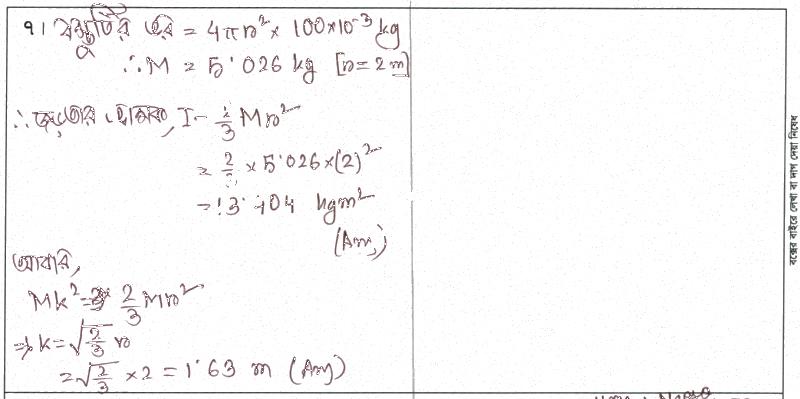 ৭। বস্তুটির ভর = 4πr² × 100×10⁻³ kg
∴ M = 5.026 kg [r = 2 m]
∴ জড়তার ভ্রামক, I = ⅔ Mr²
= ⅔ × 5.026 × (2)²
= 13.404 kgm²
(Ans)
আবার,
Mk² = ⅔ Mr²
⇒ k = √⅔ r
= √⅔ × 2 = 1.63 m (Ans)
বক্সের বাইরে লেখা বা দাগ দেয়া নিষেধ